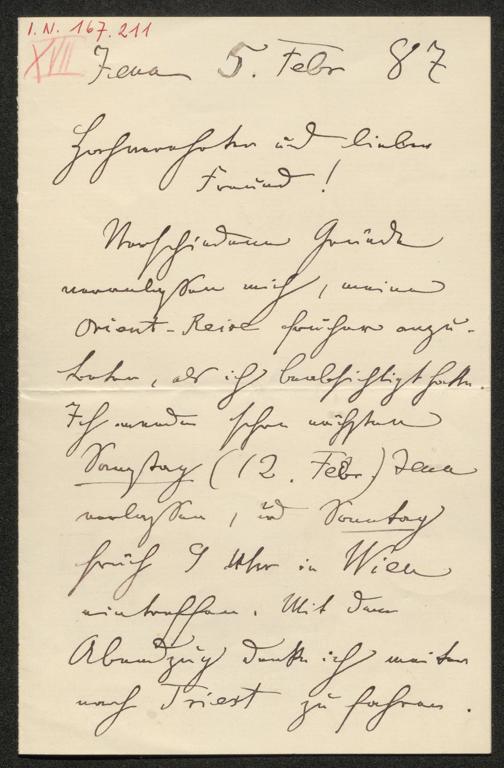 I.N. 167.211
XVII
Jena 5. Febr 87
Hochverehrter und lieber
Freund!
Verschiedene Gründe
veranlassen mich, meine
Orient-Reise früher anzu-
treten, als ich beabsichtigt hatte.
Ich werde schon nächsten
Samstag (12. Febr.) Jena
verlassen, und Sonntag
früh 9 Uhr in Wien
eintreffen. Mit dem
Abendzug denke ich weiter
nach Triest zu fahren.